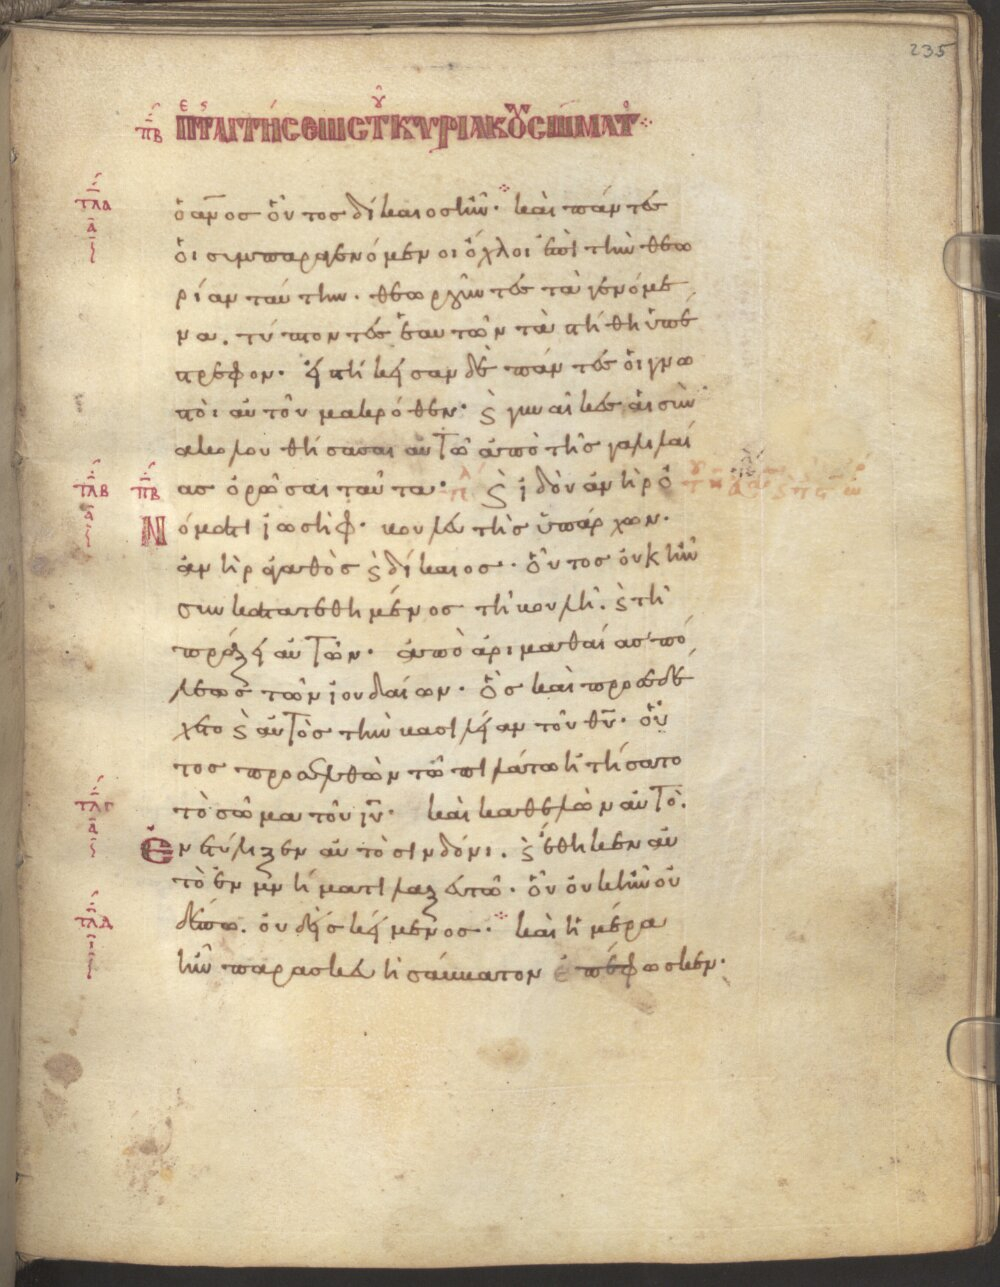 235
π̅β̅ π τ αιτησεως τ κυριακου σωματ
τλα
ὁ ἄν̅ο̅ς οὗτος δίκαιος ἦν· καὶ πάντες
α
οἱ συμπαραγενόμενοι ὄχλοι ἐπὶ τὴν θεω
ρίαν ταύτην. θεωροῦντες τὰ γενόμε
να. τύπτοντες ἑαυτῶν τὰ στήθη ὑπέ
στρεφον· εἱστήκεισαν δὲ πάντες οἱ γνω
στοὶ αὐτοῦ μακρόθεν· ϛ γυναῖκες αἱ συν
ακολουθήσασαι αὐτῶ ἀπὸ τῆς γαλιλαί
τλβ π̅β̅ ας ὁρῶσαι ταῦτα· ϛ ἰδοὺ ἀνὴρ ὀ
α
Νόματι ἰωσὴφ· βουλευτὴς ὑπάρχων·
ἀνὴρ ἀγαθὸς ϛ δίκαιος· οὗτος οὐκ ἦν
συγκατατεθημένος τῆ βουλῆ. ϛ τῆ
πράξει αὐτῶν· ἀπὸ ἀριμαθαίας πό
λεως τῶν ἰουδαίων· ὃς καὶ προσεδέ
χετο ϛ αὐτὸς τὴν βασιλείαν τοῦ θ̅υ̅· οὗ
τος προσελθὼν τῶ πιλάτω ἠτήσατο
τλγ
τὸ σῶμα τοῦ ι̅υ̅· καὶ καθελὼν αὐτὸ.
α
Ἐνετύλιξεν αὐτὸ σινδόνι. ϛ ἔθηκεν αὐ
τὸ ἐν μνήματι λαξευτῶ· οὗ οὐκ ἦν οὐ
τλδ
δέπω. οὐδεὶς κείμενος· καὶ ἡμέρα
ι
ἦν παρασκευὴ σάββατον ἐπέφωσκεν·